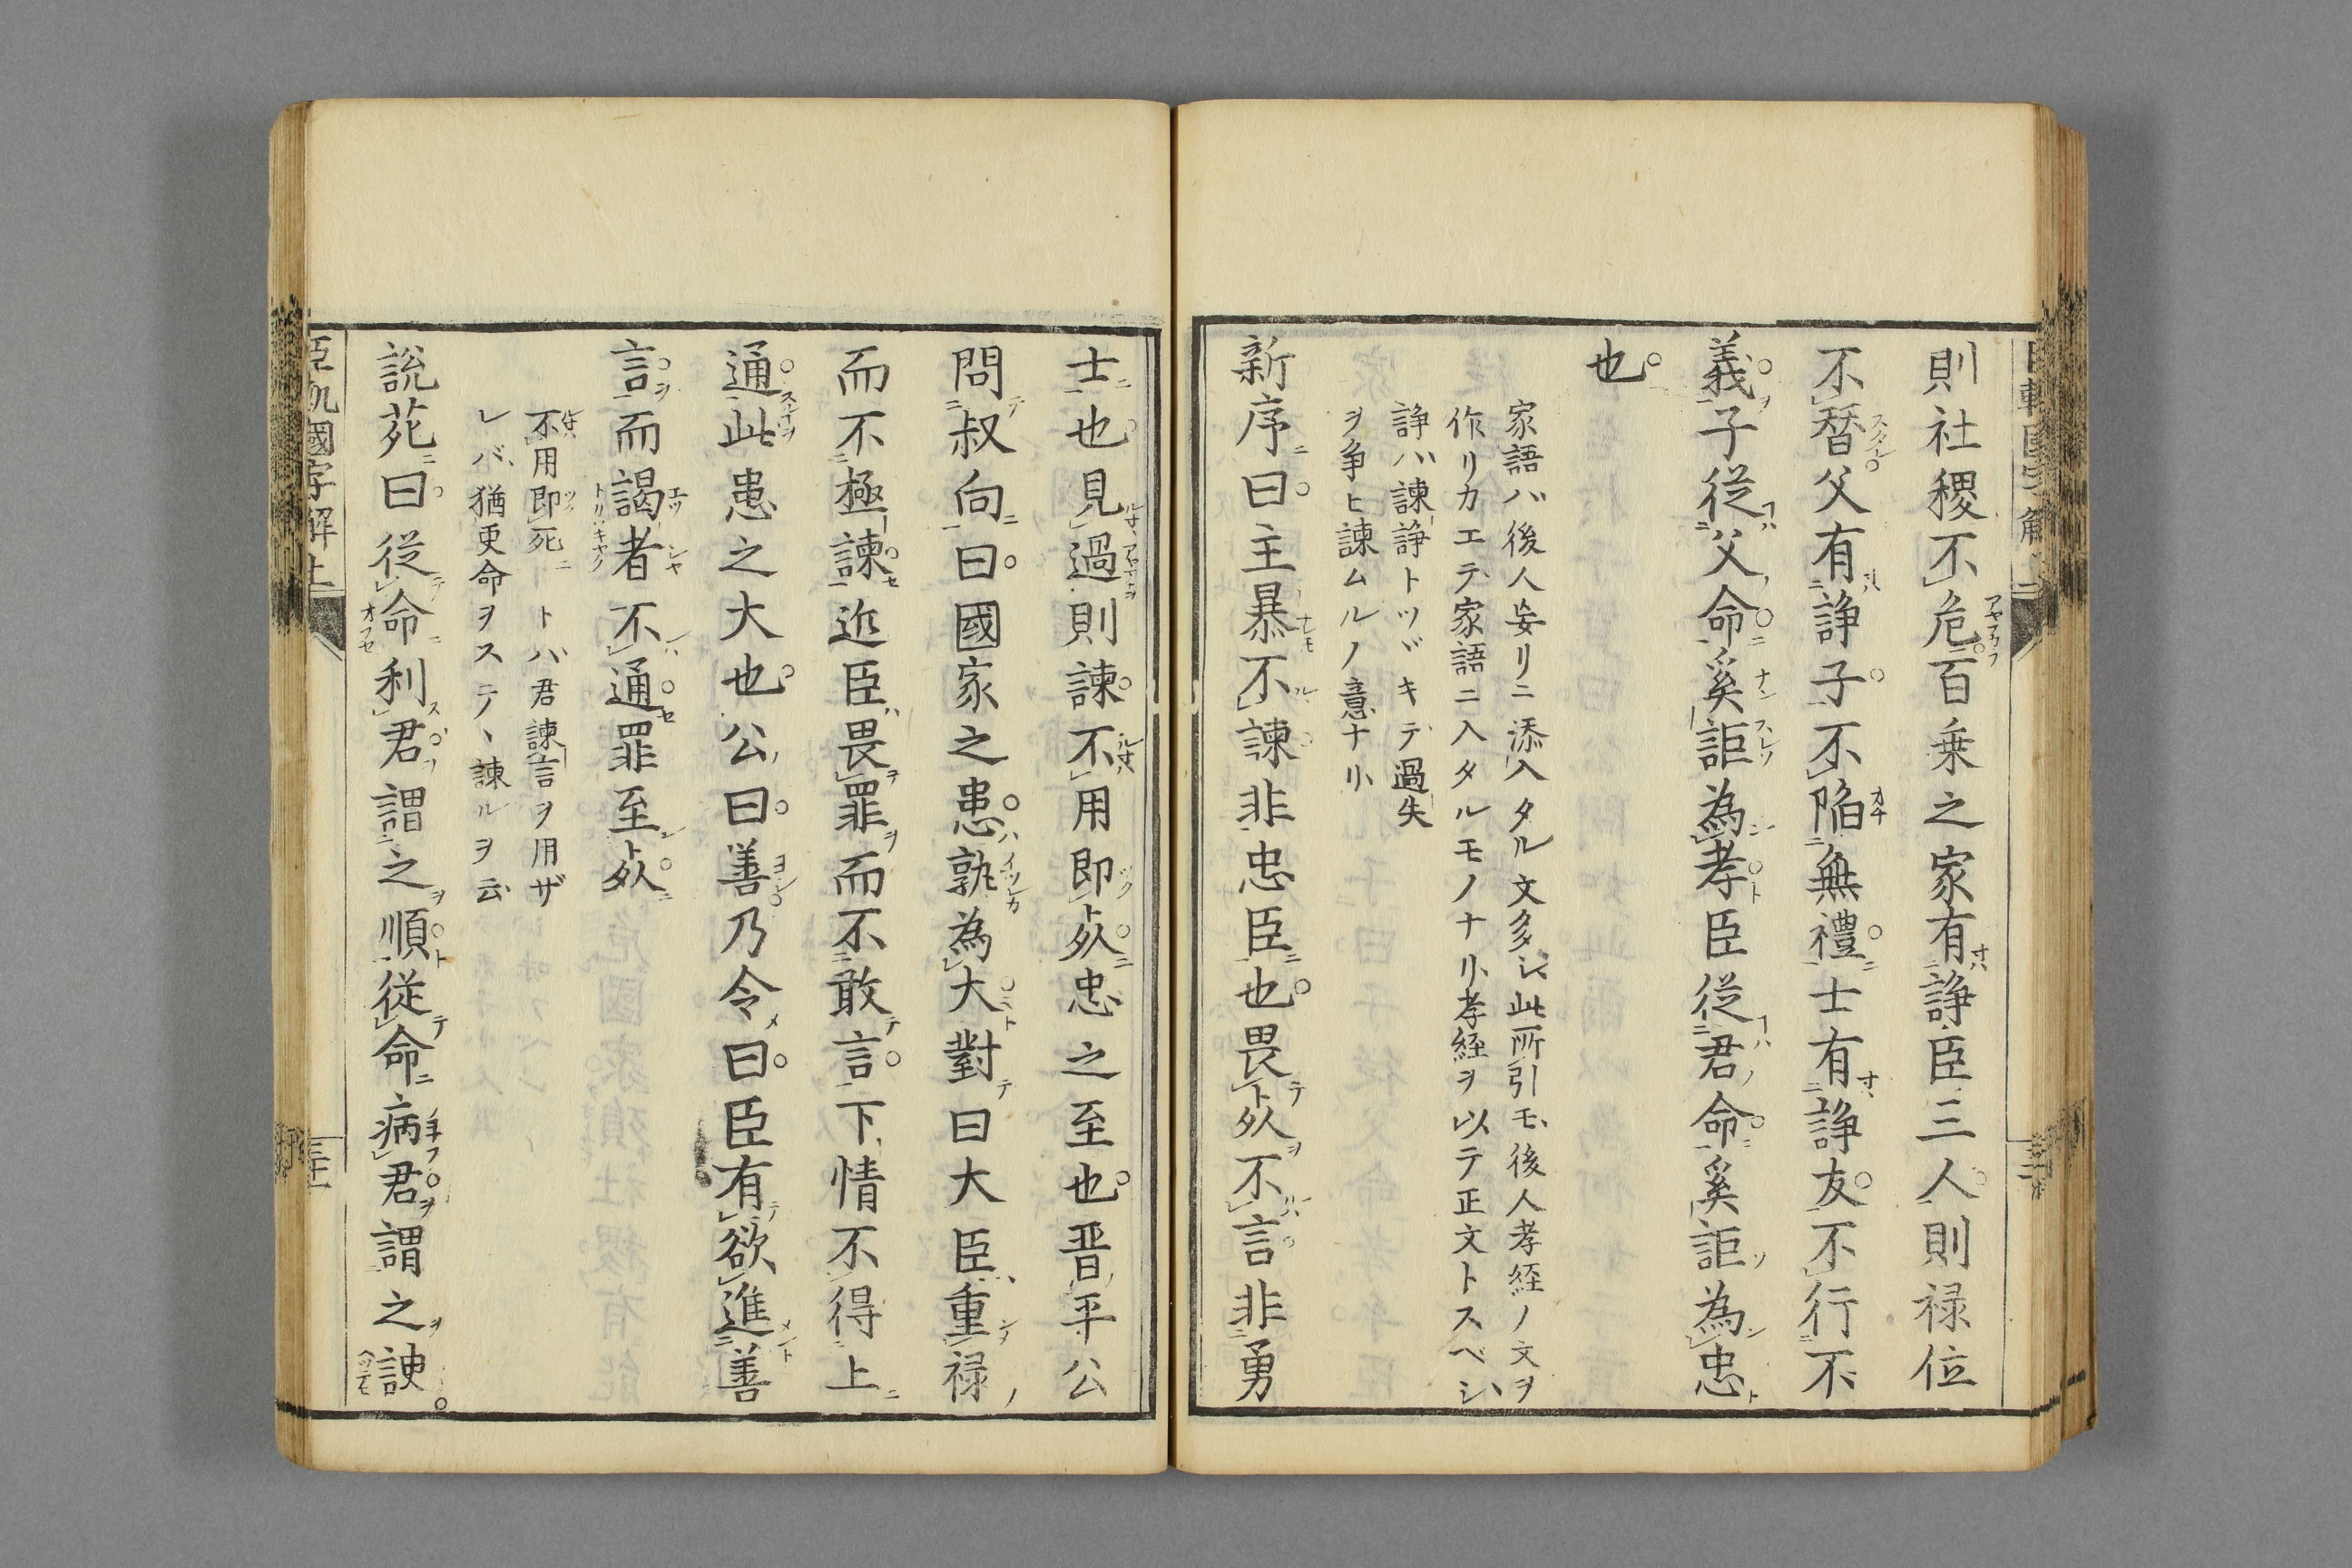 則社稷不危百乗之家有諍臣三人則禄位
不替父有諍子不陥無禮士有諍友不行不
義子從父命奚詎為孝臣從君命奚詎為忠
也
家語ハ後人妄リニ添入タル文多シ此所引モ後人孝経ノ文ヲ
作リカエテ家語ニ入タルモノナリ孝経ヲ以テ正文トスベシ
諍ハ諫諍トツヾキテ過失
ヲ争ヒ諫ムルノ意ナリ
新序曰主暴不諫非忠臣也畏死不言非勇
士也見過則諫不用即死忠之至也晋平公
問叔向曰國家之患孰為大對曰大臣重禄
而不極諫近臣畏罪而不敢言下情不得上
通此患之大也公曰善乃令曰臣有欲進善
言而謁者不通罪至死
不用即死トハ君諫言ヲ用ザ
レバ猶更命ヲステヽ諫ルヲ云
說苑曰從命利君謂之順從命病君謂之諛
臣軌國字解上